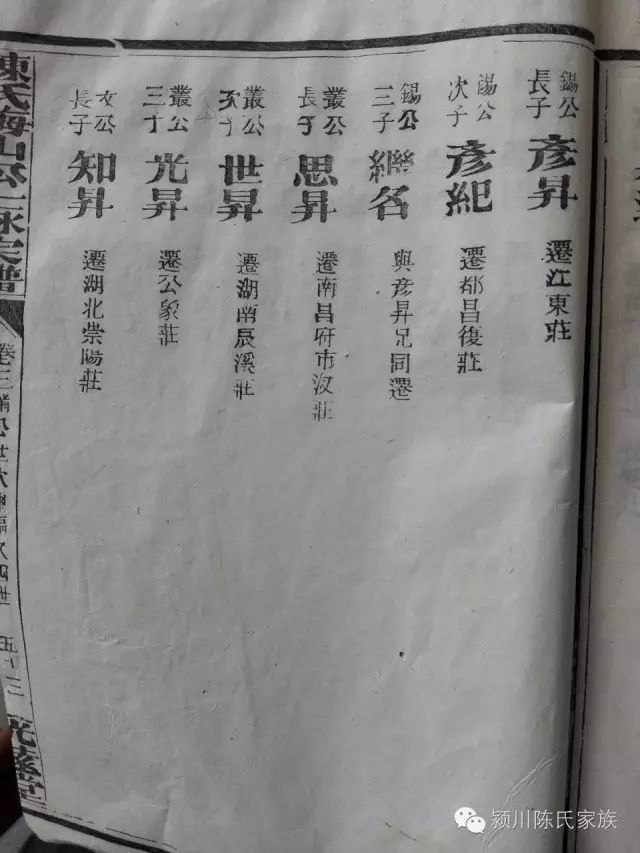 錫公長子 彥昇 遷江東莊
錫公次子 彥紀 遷都昌復莊
錫公三子 繼名 與彥昇兄同遷
叢公長子 思昇 遷南昌府市汊莊
叢公次子 世昇 遷湖南辰溪莊
叢公三子 光昇 遷公象莊
文公長子 知昇 遷湖北崇陽莊
陳氏梅山公 宗譜
卷三
颍川陈氏家族